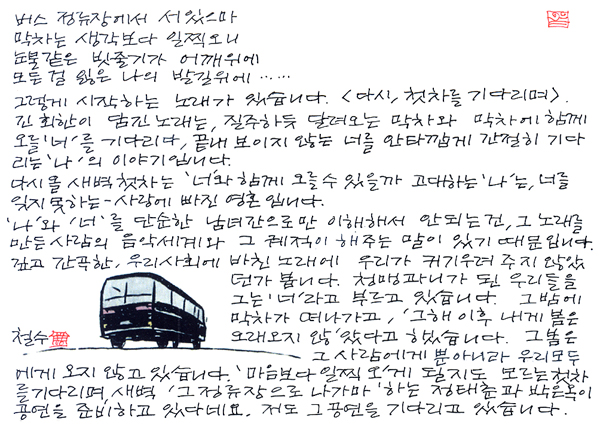 버스 정류장에서 서있으마
막차는 생각보다 일찍오니
눈물같은 빗줄기가 어깨위에
모든걸 잃은 나의 발길위에……
그렇게 시작하는 노래가 있습니다. <다시, 첫차를 기다리며>.
긴 회한이 담긴 노래는, 질주하듯 달려오는 막차와 막차에 함께
오를 '너'를 기다리다, 끝내 보이지 않는 너를 안타깝게 간절히 기다
리는 '나'의 이야기입니다.
다시 올 새벽첫차는 '너'와 함께 오를 수 있을까 고대하는 '나'는, 너를
잊지 못하는-사랑에 빠진 영혼입니다.
'나'와 '너'를 단순한 남녀간으로만 이해해서 안되는건, 그 노래를
만든 사람의 음악세계와 그 궤적이 해주는 말이 있기 때문입니다.
깊고 간곡한, 우리사회에 바친 노래에 우리가 귀기울여 주지 않았
던가 봅니다. 청맹과니가 된 우리들을
그는 '너'라고 부르고 있습니다. 그밤에
막차가 떠나가고, '그해 이후 내게 봄은
오래오지 않'았다고 했습니다. 그봄은
철수
그 사람에게 뿐아니라 우리모두
에게 오지 않고 있습니다. '마음보다 일찍 오'게 될지도 모르는 첫차
를 기다리며, 새벽 '그 정류장으로 나가마' 하는 정태춘과 박은옥이
공연을 준비하고 있다네요. 저도 그공연을 기다리고 있습니다.